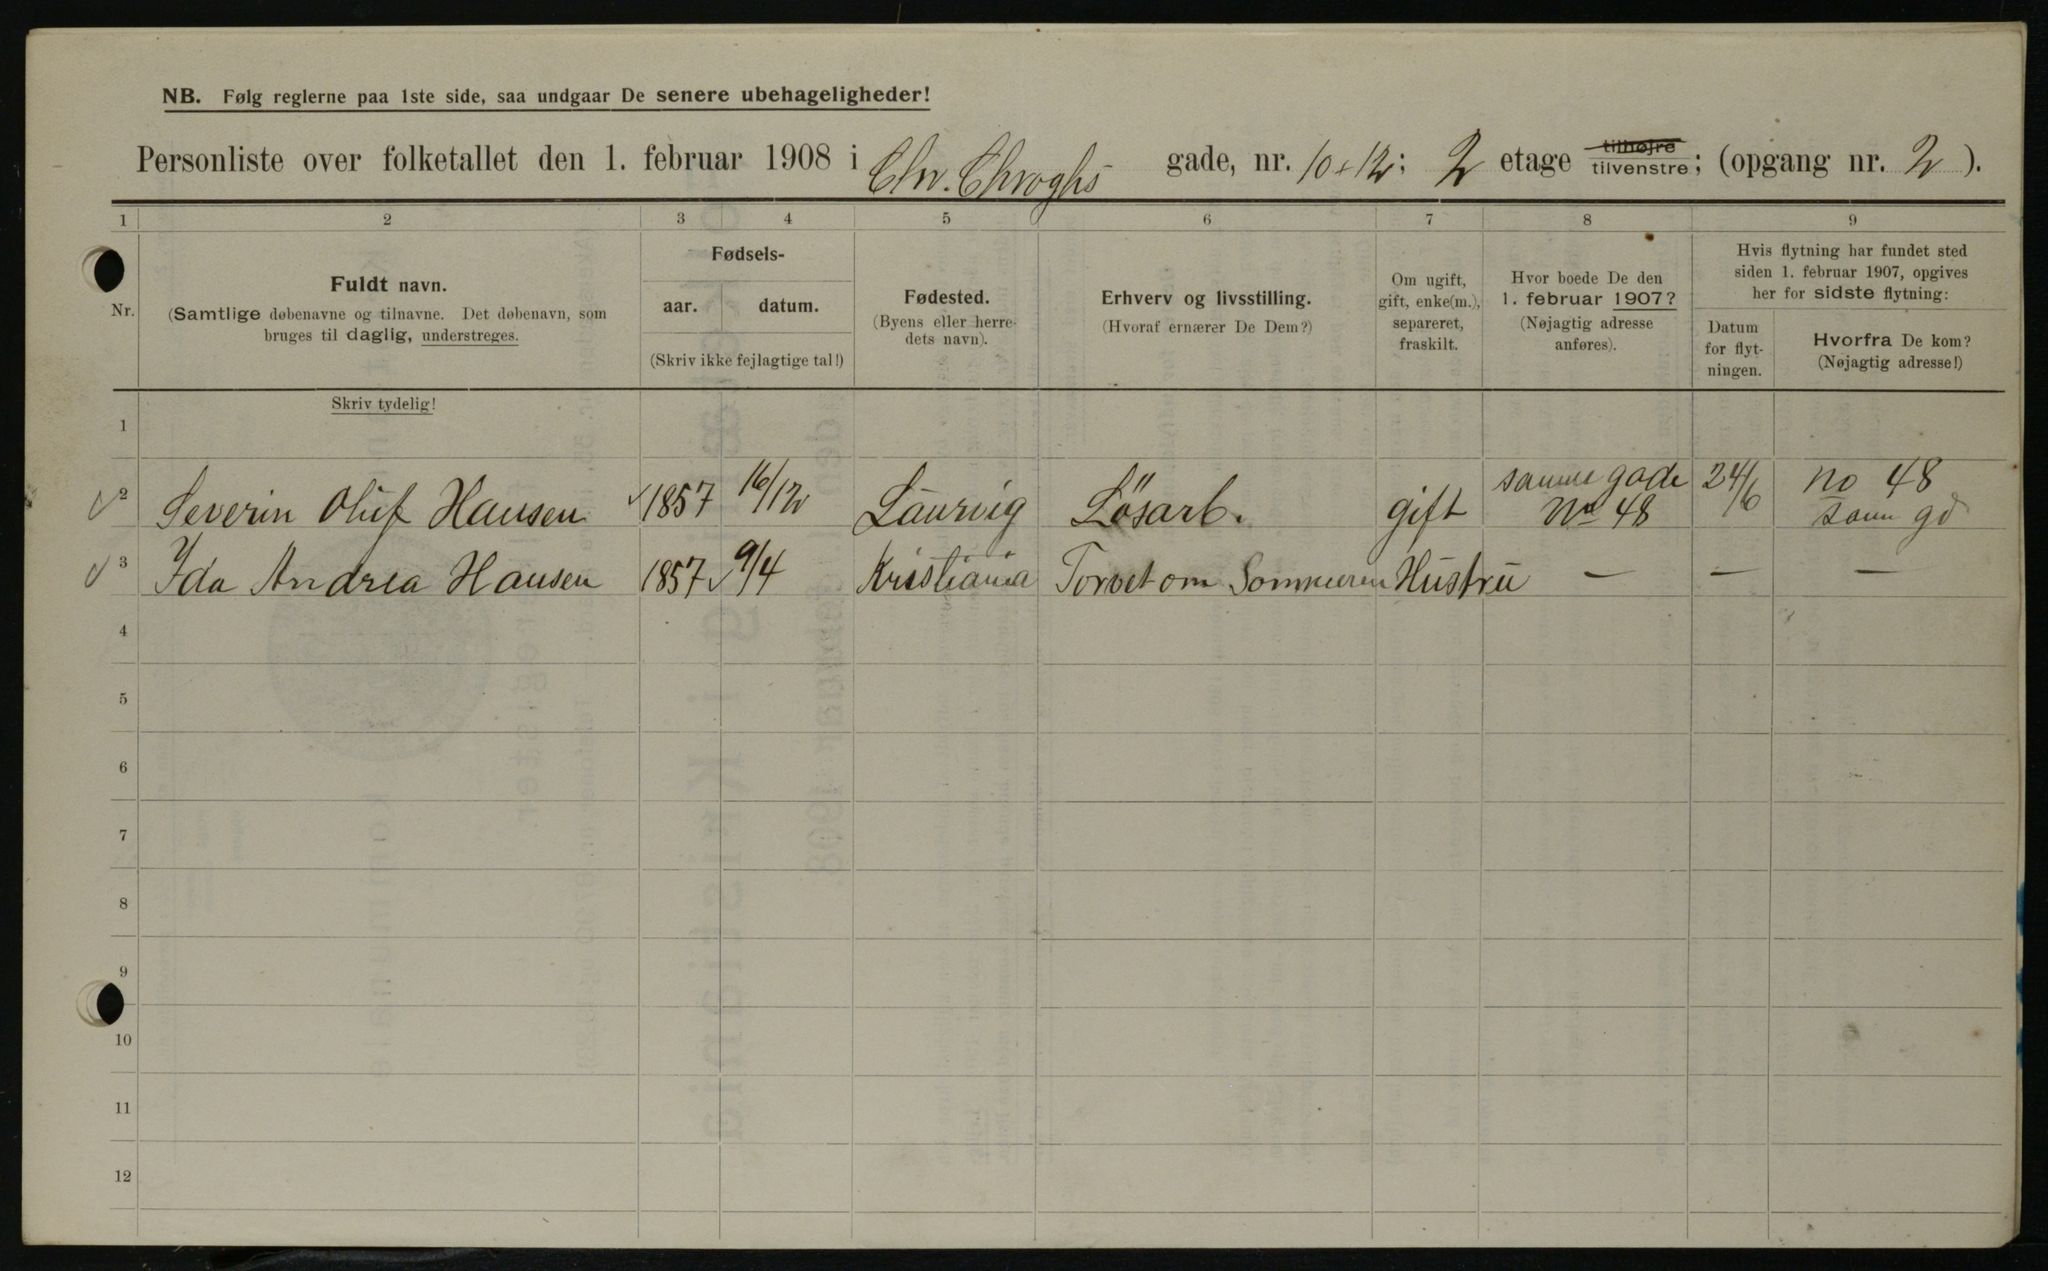 NB. Følg reglerne paa 1ste side, saa undgaar De senere ubehageligheder!
Personliste over folketallet den 1. februar 1908 i Chr. Chroghs gade, nr. 10+12; 2 etage tilhøjre tilvenstre; (opgang nr. 2).
1 2 3 4 5 6 7 8 9
Nr.
Fuldt navn.
(Samtlige døbenavne og tilnavne. Det døbenavn, som
bruges til daglig, understreges.
Fødsels-
aar. datum.
(Skriv ikke fejlagtige tal!)
Fødested.
(Byens eller herre-
dets navn).
Erhverv og livsstilling.
(Hvoraf ernærer De Dem?)
Om ugift,
gift, enke(m.),
separeret,
fraskilt.
Hvor boede De den
1. februar 1907?
(Nøjagtig adresse
anføres).
Hvis flytning har fundet sted
siden 1. februar 1907, opgives
her for sidste flytning:
Datum
for flyt-
ningen.
Hvorfra De kom?
(Nøjagtig adresse!)
Skriv tydelig!
1
2 Severin Oluf Hansen 1857 16/12 Laurvig Løsarb. gift samme gade No 48 24/6 no 48 samm gd
3 Ida Andrea Hansen 1857 9/4 Kristiania Torvet om Sommeren Hustru — — —
4
5
6
7
8
9
10
11
12